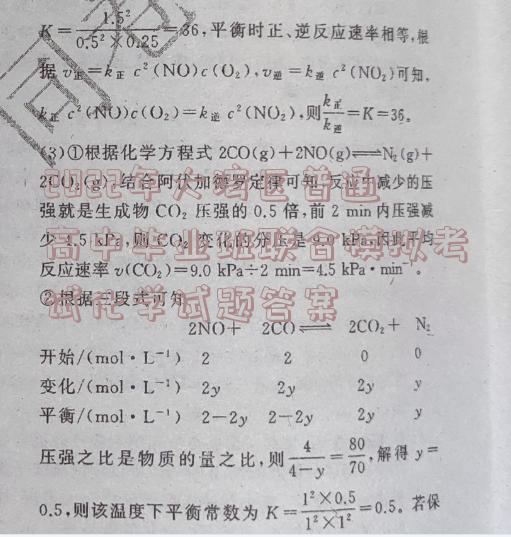 K=1.5²/0.5²×0.25=36,平衡时正、逆反应速率相等,根
据 v正=k正 c²(NO)c(O₂),v逆=k逆 c²(NO₂)可知,
k正 c²(NO)c(O₂)=k逆 c²(NO₂),则k正/k逆=K=36。
(3)①根据化学方程式 2CO(g)+2NO(g)⇌N₂(g)+
2CO₂(g),结合阿伏加德罗定律可知,反应中减少的压
强就是生成物 CO₂ 压强的 0.5 倍,前 2 min 内压强减
少 4.5 kPa,则 CO₂ 变化的分压是 9.0 kPa,因此平均
反应速率 v(CO₂)=9.0 kPa÷2 min=4.5 kPa·min⁻¹。
②根据三段式可知
2NO+ 2CO⇌ 2CO₂+ N₂
开始/(mol·L⁻¹) 2 2 0 0
变化/(mol·L⁻¹) 2y 2y 2y y
平衡/(mol·L⁻¹) 2-2y 2-2y 2y y
压强之比是物质的量之比,则4/4-y=80/70,解得 y=
0.5,则该温度下平衡常数为 K=1²×0.5/1²×1²=0.5。若保
2022年大湾区普通
高中毕业班联合模拟考
试化学试题答案